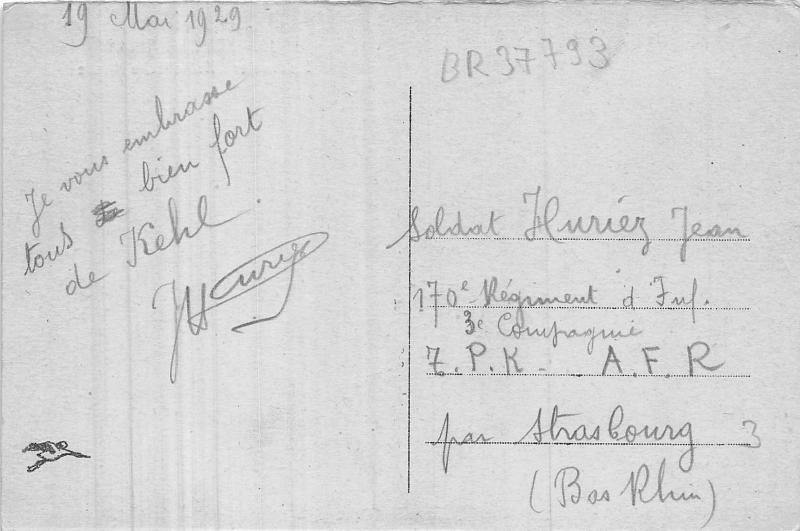 19 Mai 1929
Je vous embrasse
tous bien fort
de Kehl.
JHuriez
BR37793
Soldat Huriez Jean
170e Régiment d'Inf.
3e Compagnie
T.P.K - A.F.R
par Strasbourg 3
(Bas Rhin)